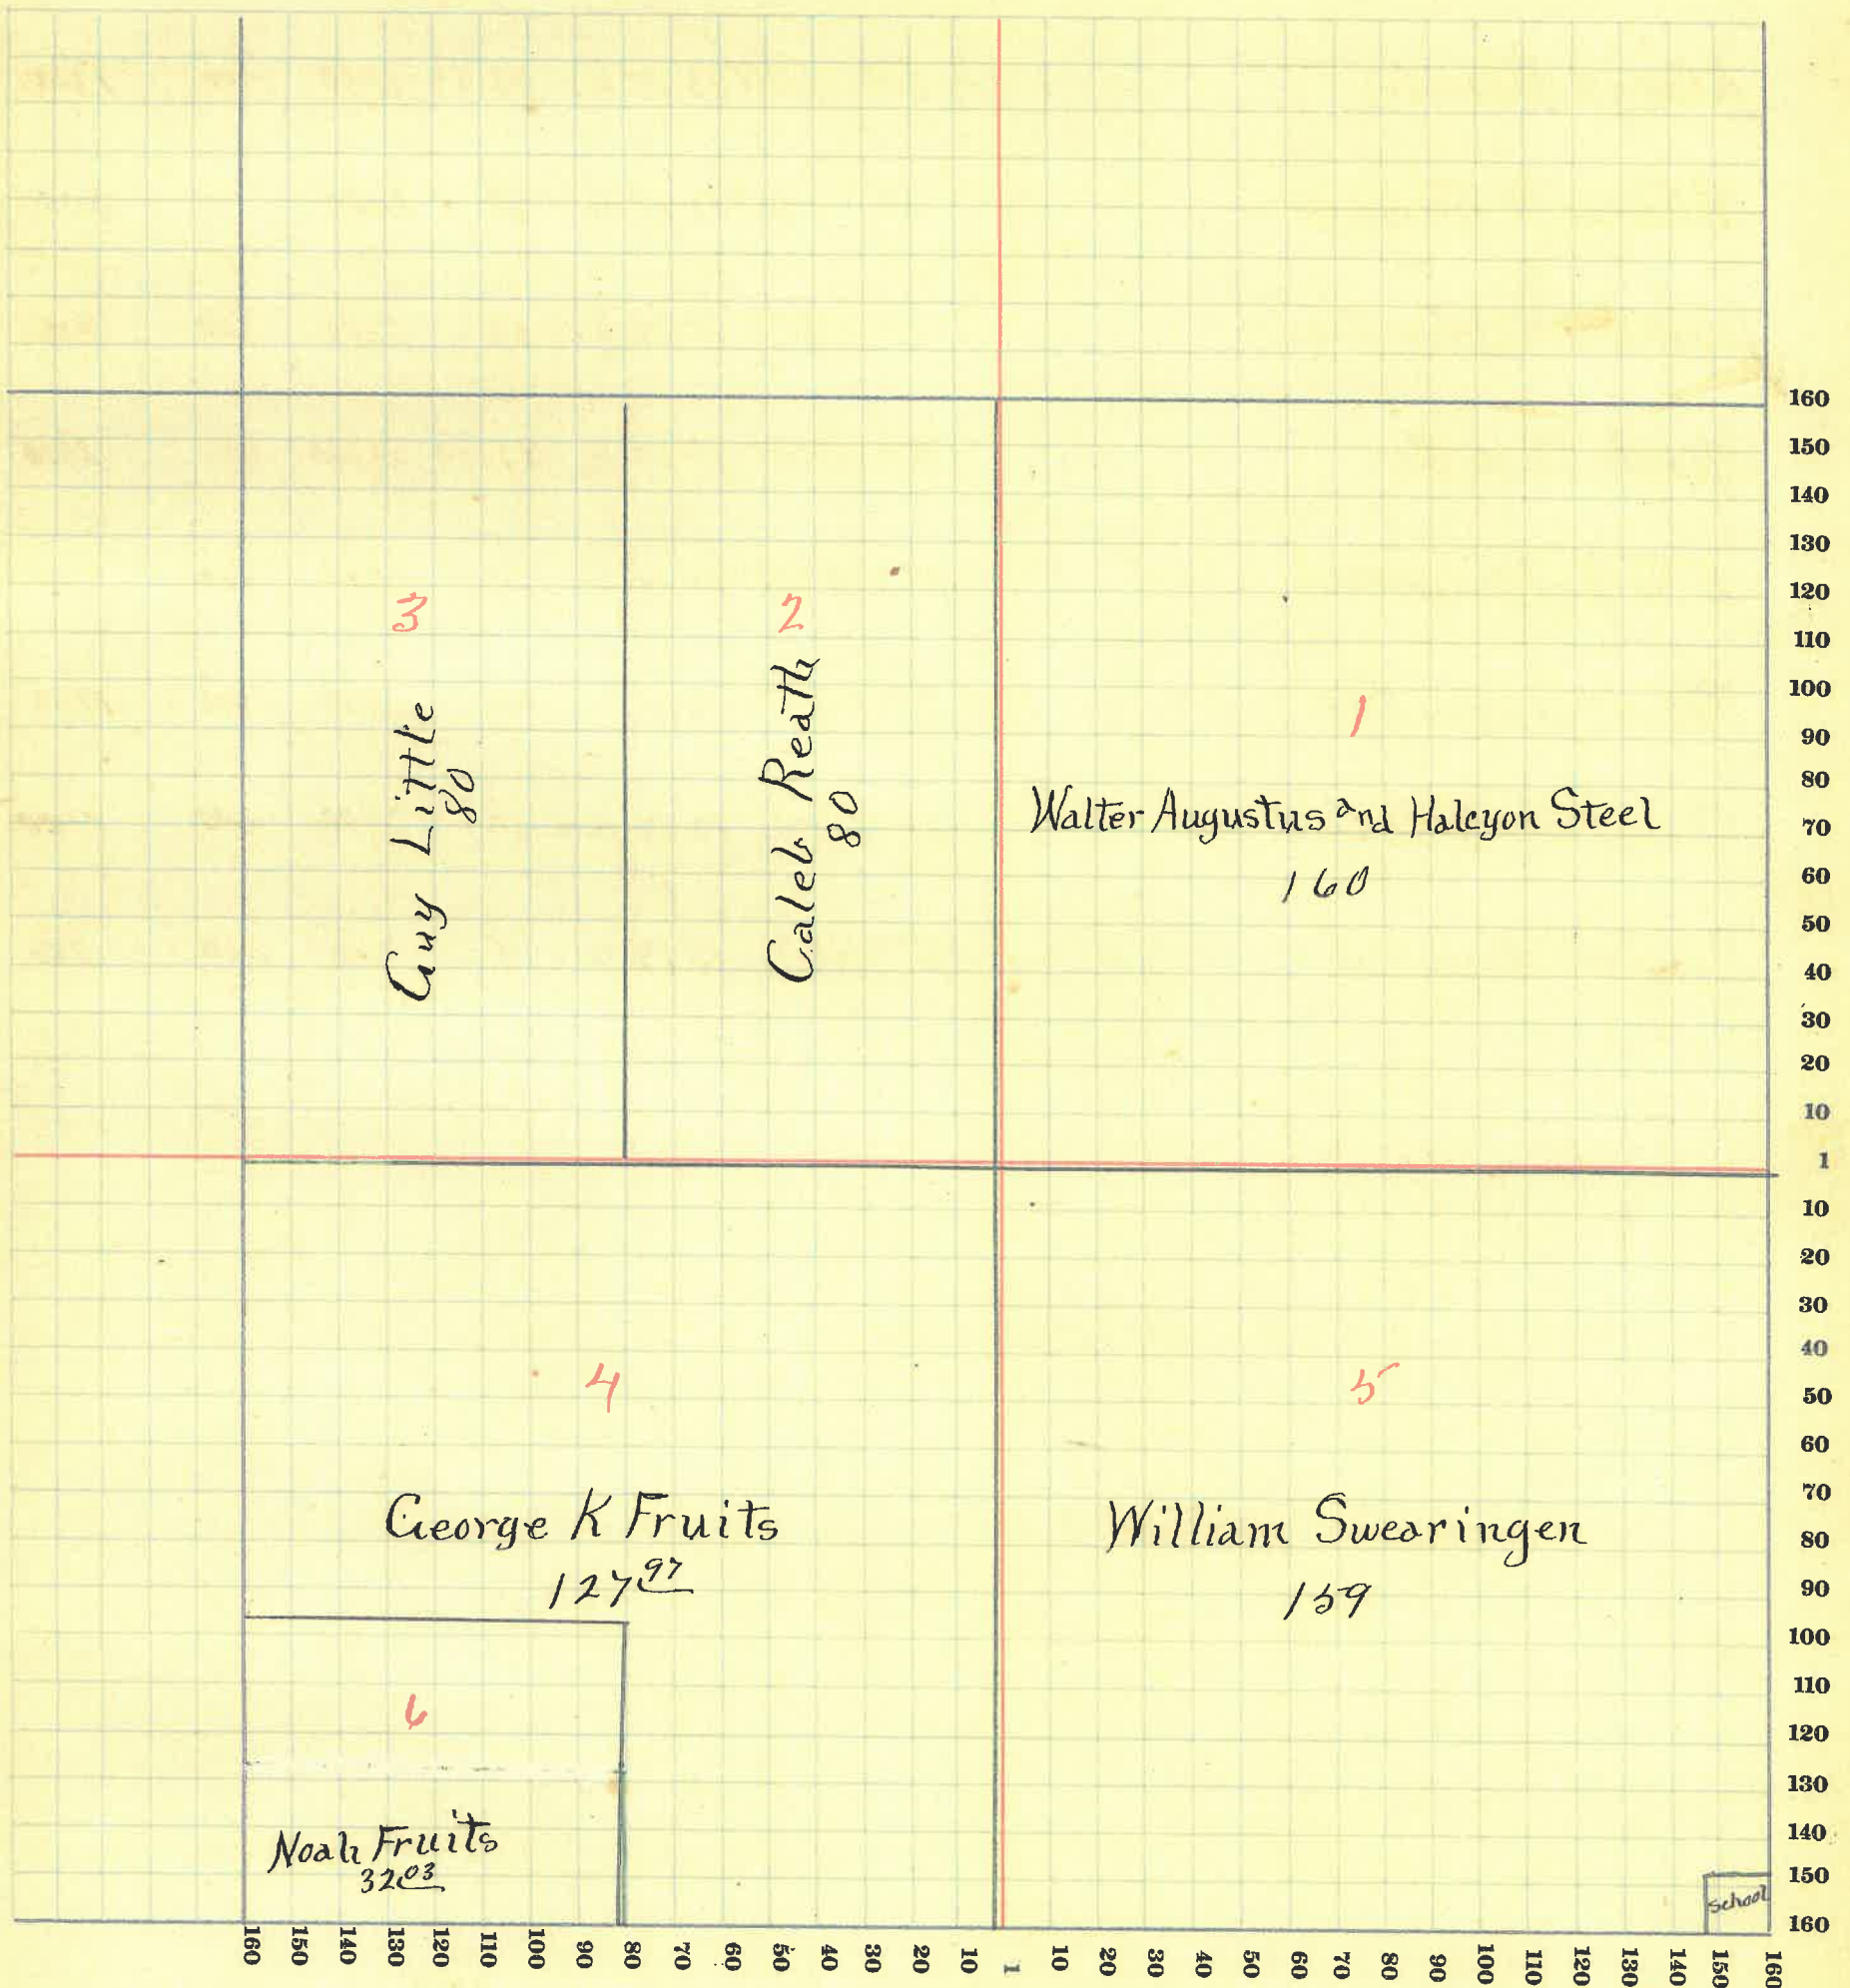 3
Guy Little
80
2
Caleb Reath
80
1
Walter Augustus and Halcyon Steel
160
4
George K Fruits
127 97
5
William Swearingen
159
6
Noah Fruits
32 03
School
160
150
140
130
120
110
100
90
80
70
60
50
40
30
20
10
1
10
20
30
40
50
60
70
80
90
100
110
120
130
140
150
160
160 150 140 130 120 110 100 90 80 70 60 50 40 30 20 10 1 10 20 30 40 50 60 70 80 90 100 110 120 130 140 150 160